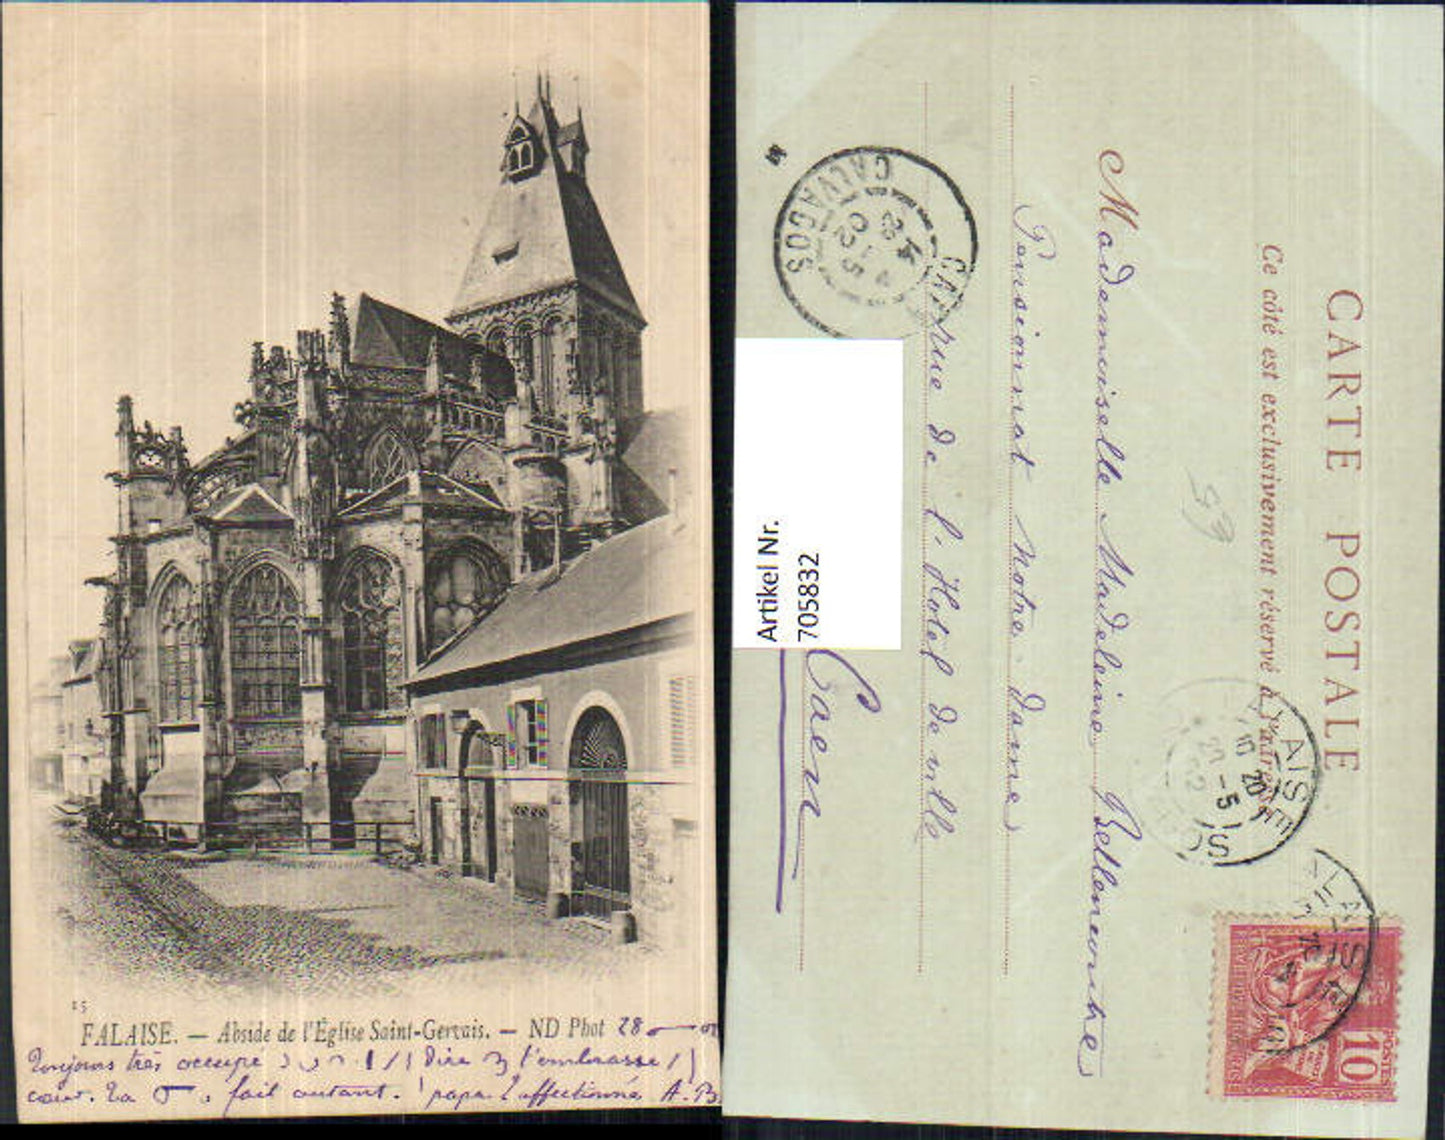 15
FALAISE. — Abside de l'Église Saint-Gervais. — ND Phot 28
Toujours très occupé
dire
t'embrasse
cœur. La
fait autant.
papa
affectionné A. B
CARTE POSTALE
Ce côté est exclusivement réservé à l'adresse
59
Mademoiselle Madeleine Bellencontre
Pensionnat Notre-Dame
rue de l'Hotel de ville
Caen
Artikel Nr.
705832
CALVADOS
FALAISE
POSTES
10